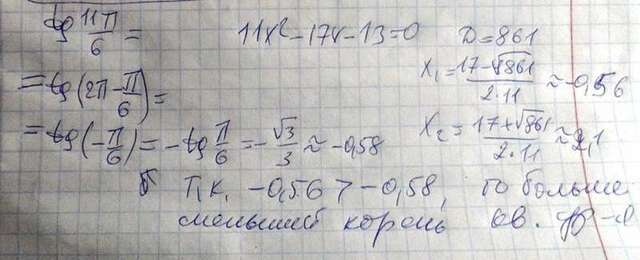 tg 11π/6 =
= tg(2π - π/6) =
= tg(-π/6) = -tg π/6 = -√3/3 ≈ -0,58
11x² - 17x - 13 = 0 D = 861
x₁ = (17 - √861)/(2·11) ≈ -0,56
x₂ = (17 + √861)/(2·11) ≈ 2,1
Т.к. -0,56 > -0,58, то больше
меньший корень кв. ур-я